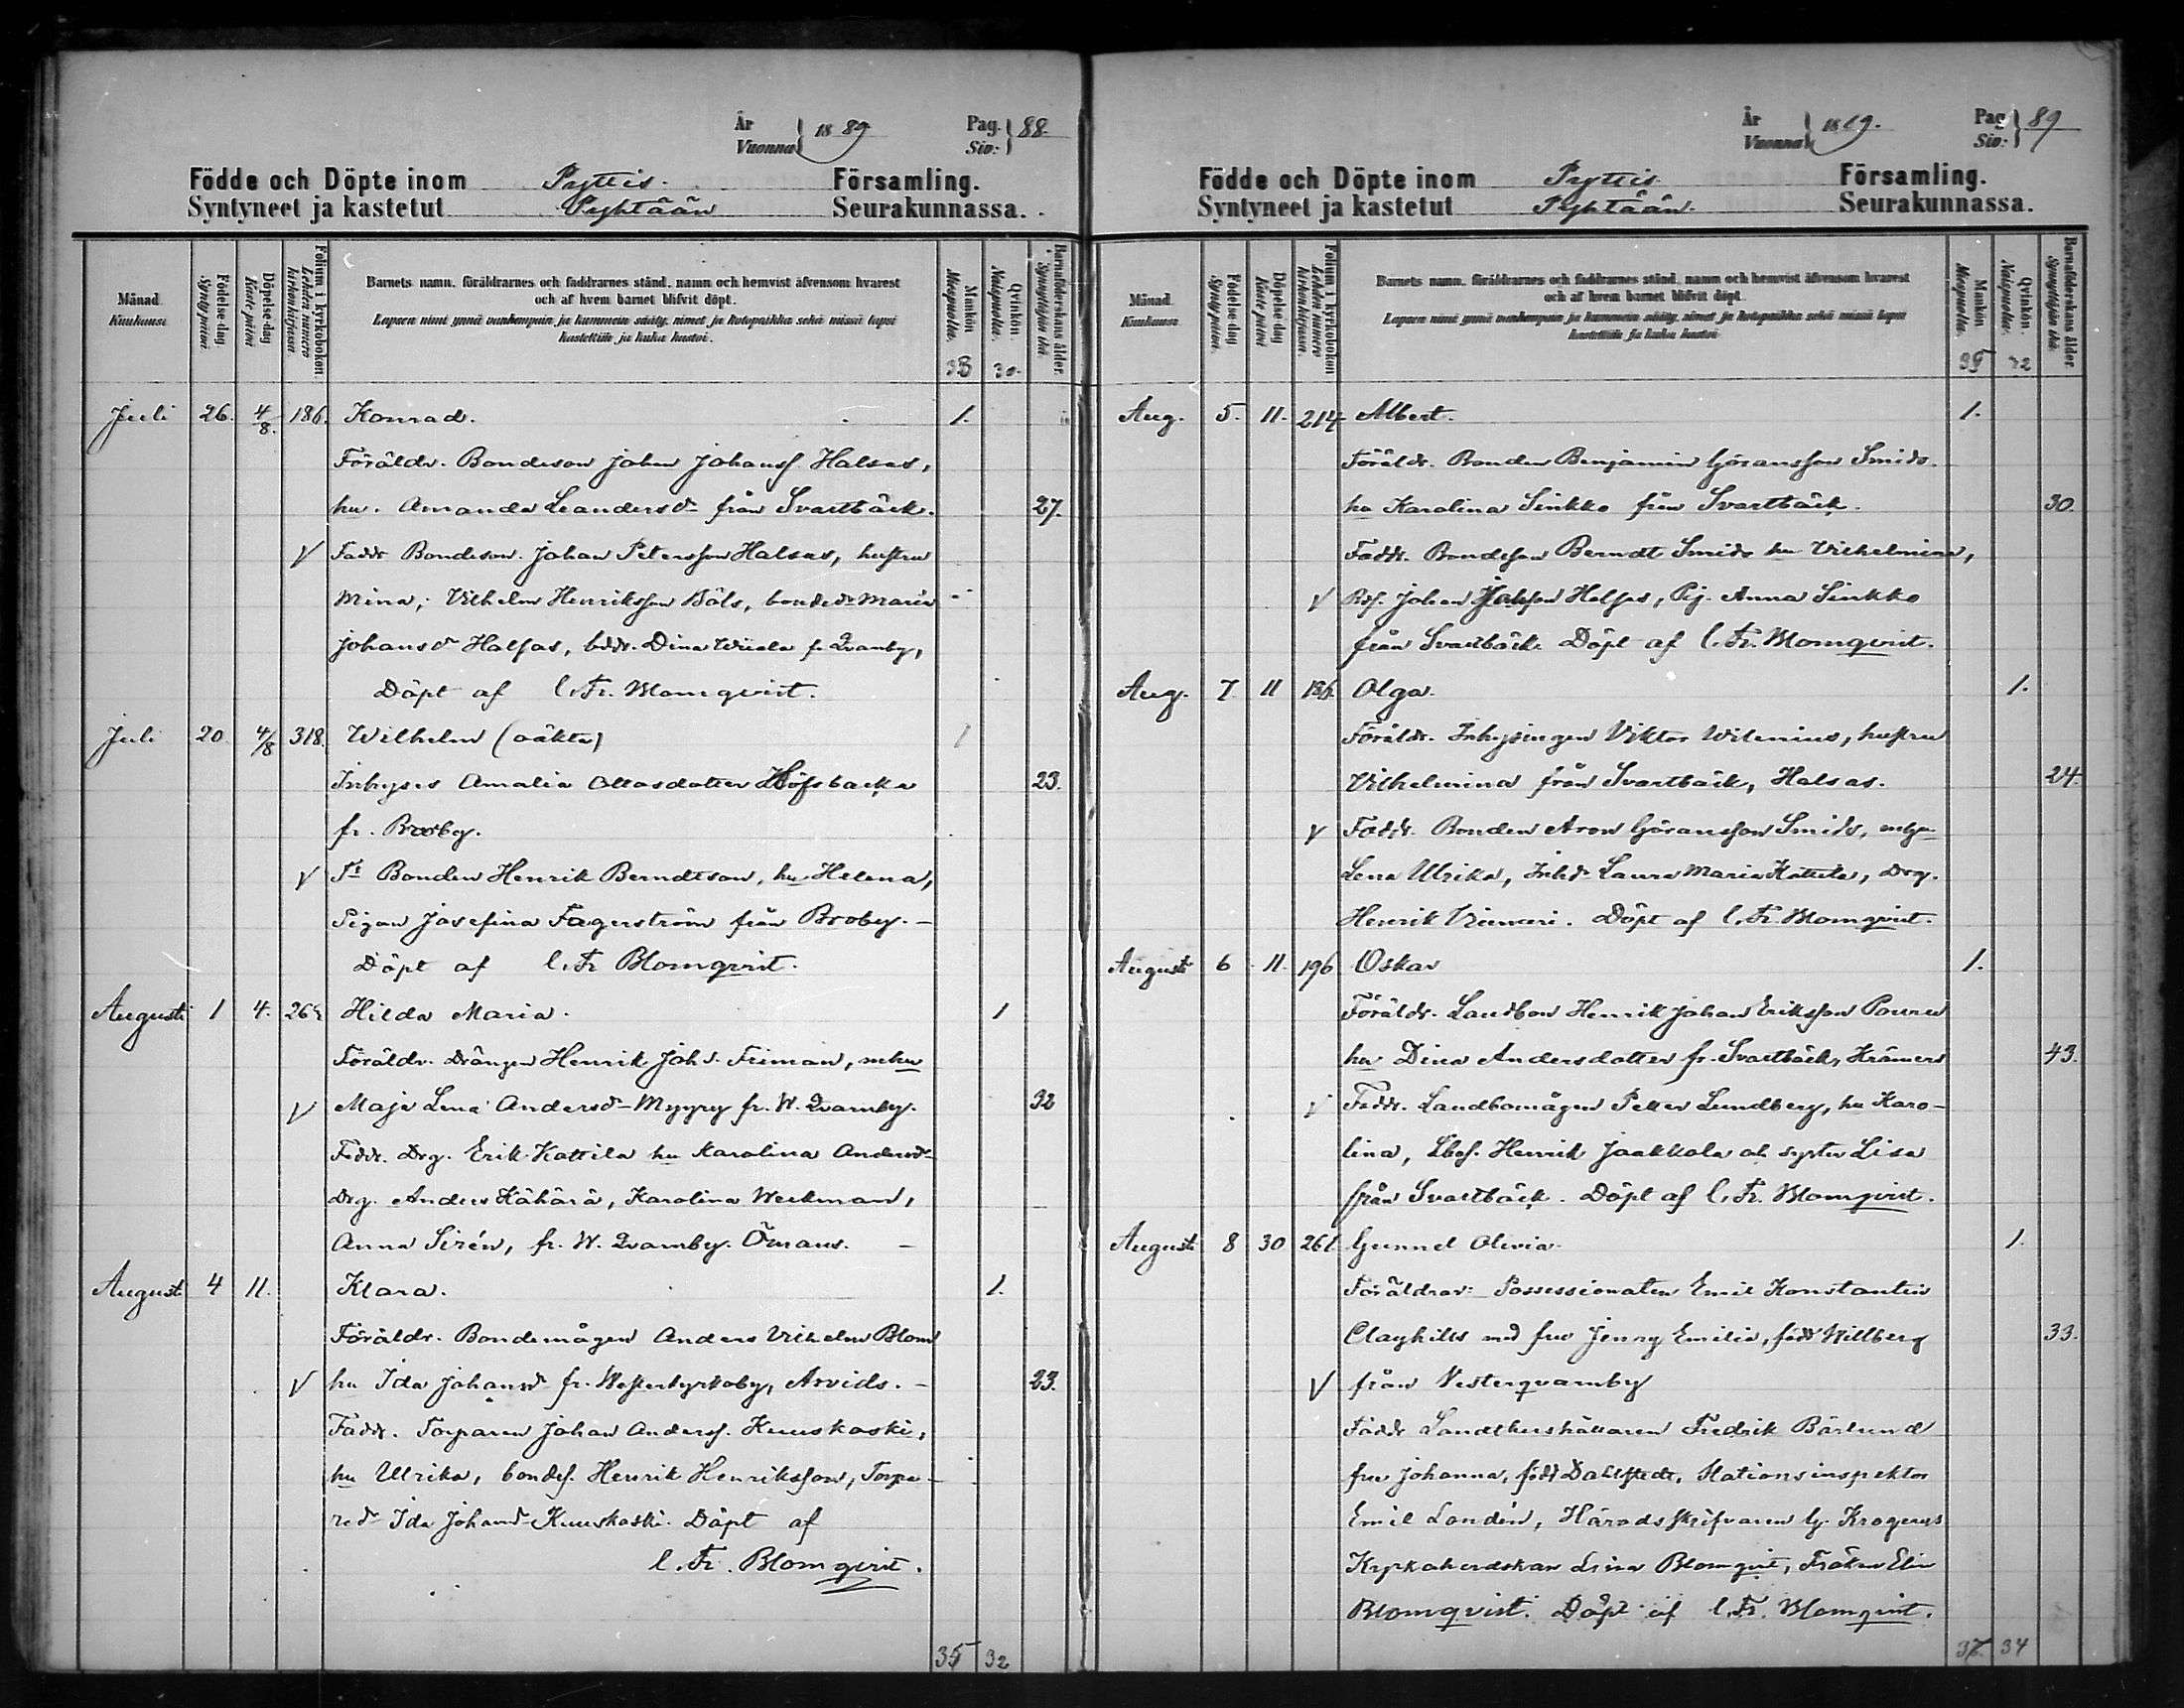 År
Vuonna } 1889
Pag.
Siv: } 88.
Födde och Döpte inom Pyttis. Församling.
Syntyneet ja kastetut Pyhtään Seurakunnassa.
Månad
Kuukausi
Födelse-dag.
Synty päivä.
Döpelse-dag
Kaste päivä
Folium i kyrkoboken.
Lehden numero kirkonkirjassa.
Barnets namn, föräldrarnes och faddrarnes stånd, namn och hemvist äfvensom hvarest
och af hvem barnet blifvit döpt.
Lapsen nimi ynnä vanhempain ja kummein sääty, nimet ja kotopaikka sekä missä lapsi
kastettiin ja kuka kastoi.
Mankön
Miespuolta.
Qvinkön.
Naispuolta.
Barnaföderskans ålder.
Synnyttäjän ikä.
33 30.
Juli 26. 4/8. 186. Konrad. 1.
Föräldr. Bondeson Johan Johanss. Halsas,
hu. Amanda Leandersdr från Svartbäck. 27.
V Faddr Bondeson. Johan Petersson Halsas, hustru
Mina, Vilhelm Henriksson Båls, bondedr Maria
Johansdr Halsas, bddr. Dina fr Qvarnby,
Döpt af C. Fr. Blomqvist.
Juli 20. 4/8 318. Wilhelm (oäkta) 1
Inhyses Amalia Ottosdotter Höfsbacka 23.
fr. Broby.
V Fr Bonden Henrik Berndtson, hu Helena,
Pigan Josefina Fagerström från Broby. –
Döpt af C. Fr Blomqvist.
Augusti 1 4. 265 Hilda Maria. 1
Föräldr. Drängen Henrik Joh s. Friman, m hu
V Maja Lena Andersdr Myyry fr. W. Qvarnby. 32
Faddr. Drg. Erik Kattila hu Karolina Andersdr
Drg. Anders Kähärä, Karolina Weckman,
Anna Sirén, fr. W. Qvarnby. Ömans. –
August. 4 11. Klara. 1.
Föräldr. Bondemågen Anders Vilhelm Blom
V hu Ida Johansdr fr. Westerkyrkoby, Arvids. – 23.
Faddr. Torparen Johan Anderss. Kuuskoski,
hu Ulrika, bondes. Henrik Henriksson, Torpa-
redr Ida Johansdr Kuuskoski. Döpt af
C. Fr. Blomqvist.
35 32
År
Vuonna } 1889.
Pag
Siv: } 89
Födde och Döpte inom Pyttis Församling.
Syntyneet ja kastetut Pyhtään. Seurakunnassa.
Månad
Kuukausi
Födelse-dag
Synty päivä.
Döpelse-dag
Kaste päivä
Folium i kyrkoboken
Lehden numero kirkonkirjassa.
Barnets namn, föräldrarnes och faddrarnes stånd, namn och hemvist äfvensom hvarest
och af hvem barnet blifvit döpt.
Lapsen nimi ynnä vanhempain ja kummein sääty, nimet ja kotopaikka sekä missä lapsi
kastettiin ja kuka kastoi
Mankön
Miespuolta.
Qvinkön.
Naispuolta.
Barnaföderskans ålder.
Synnyttäjän ikä.
35 32
Aug. 5. 11. 214 Albert. 1.
Föräldr. Bonden Benjamin Göransson Smids.
hu Karolina Sinkko från Svartbäck. 30.
Faddr. Bondeson Berndt Smids hu Vilhelmina,
V Bdfs. Johan Halsas, Pig. Anna Sinkko
från Svartbäck. Döpt af C. Fr. Blomqvist.
Aug. 7. 11 186. Olga. 1.
Föräldr. Inhysingen Viktor Wilenius, hustru
Vilhelmina från Svartbäck, Halsas. 24.
V Faddr. Bonden Aron Göransson Smids,
Lena Ulrika, Inhdr Laura Maria Kattila, Drg.
Henrik. Döpt af C. Fr. Blomqvist.
Augusti 6 11. 196 Oskar 1.
Föräldr. Landbon Henrik Johan Eriksson Pouru
hu Dina Andersdotter fr. Svartbäck, Krämers 43.
V Faddr. Landbomågen Petter Lundberg, hu Karo-
lina, Lbof. Henrik Jaakkola och syster Lisa
från Svartbäck. Döpt af C. Fr. Blomqvist.
Augusti 8 30 261 Gunnel Olivia. 1.
Föräldrar: Possessionaten Emil Konstantin
Clayhills med fru Jenny Emilia, född Willberg 33.
V från Vesterqvarnby
Faddr Landthushållaren Fredrik Bärlund
fru Johanna, född Dahlstedt, Stationsinspektor
Emil Londén, Häradsskrifvaren G. Krogerus
Kyrkoherdskan Lina Blomqvist, Fröken Elin
Blomqvist. Döpt af C. Fr. Blomqvist.
37. 34